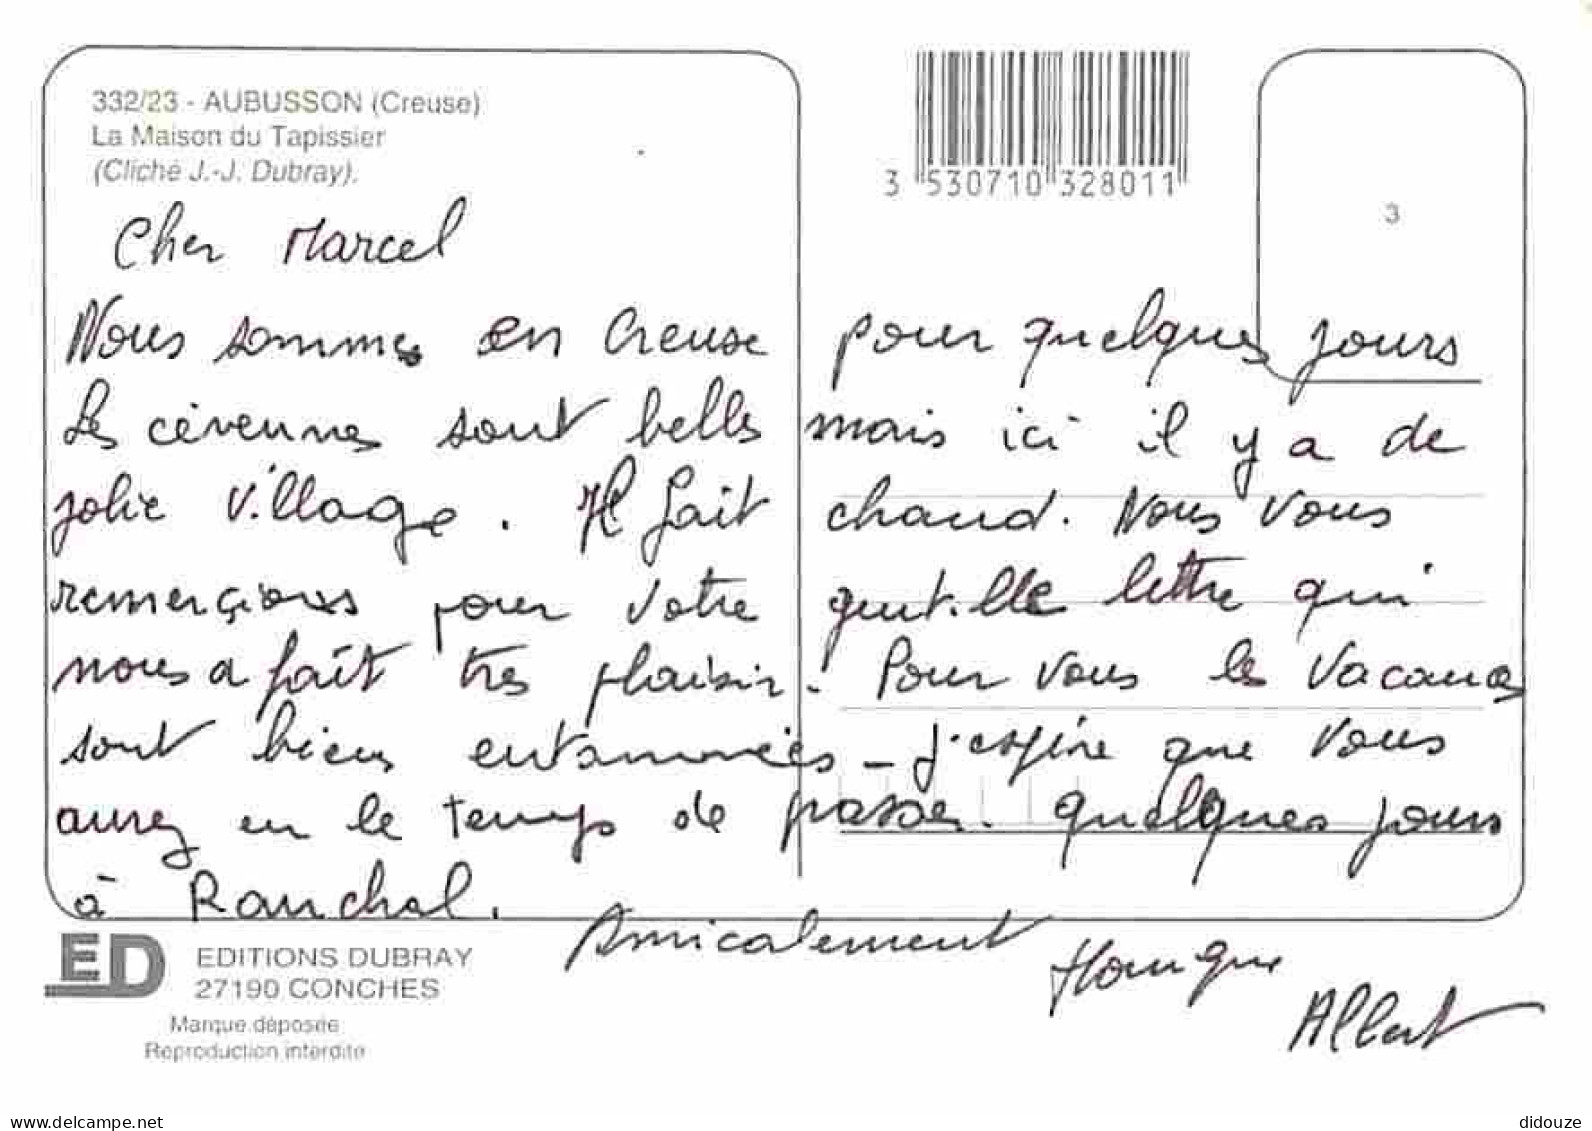 332/23 - AUBUSSON (Creuse)
La Maison du Tapissier
(Cliché J.-J. Dubray).
3 530710 328011
3
Cher Marcel
Nous sommes en Creuse pour quelques jours
Les cévennes sont belles mais ici il y a de
jolie village. Il fait chaud. Nous vous
remerçions pour votre gentille lettre qui
nous a fait très plaisir. Pour vous les vacances
sont bien entammées - j'espère que vous
aurez eu le temps de passer quelques jours
à Ranchal.
Amicalement
Monique
Albert
ED
EDITIONS DUBRAY
27190 CONCHES
Marque déposée
Reproduction interdite
www.delcampe.net
didouze